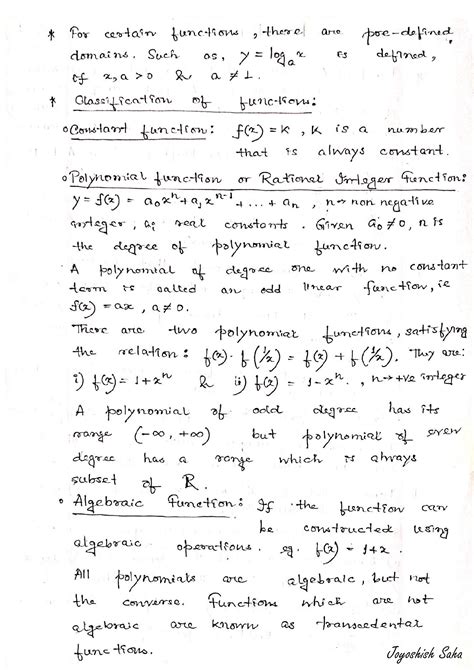 * For certain functions, there are pre-defined
domains. Such as, y = logₐx is defined,
if x, a > 0 & a ≠ 1.
* Classification of functions:
o Constant function: f(x) = K, K is a number
that is always constant.
o Polynomial function or Rational Integer Function:
y = f(x) = a₀xⁿ + a₁xⁿ⁻¹ + ... + aₙ, n → non negative
integer, aᵢ real constants. Given a₀ ≠ 0, n is
the degree of polynomial function.
A polynomial of degree one with no constant
term is called an odd linear function, ie
f(x) = ax, a ≠ 0.
There are two polynomial functions, satisfying
the relation: f(x) · f(1/x) = f(x) + f(1/x). They are:
i) f(x) = 1 + xⁿ & ii) f(x) = 1 - xⁿ, n → +ve integer
A polynomial of odd degree has its
range (-∞, +∞) but polynomial of even
degree has a range which is always
subset of R.
o Algebraic Function: If the function can
be constructed using
algebraic operations. eg. f(x) = 1+x.
All polynomials are algebraic, but not
the converse. Functions which are not
algebraic are known as transcedental
functions.
Joyoshish Saha